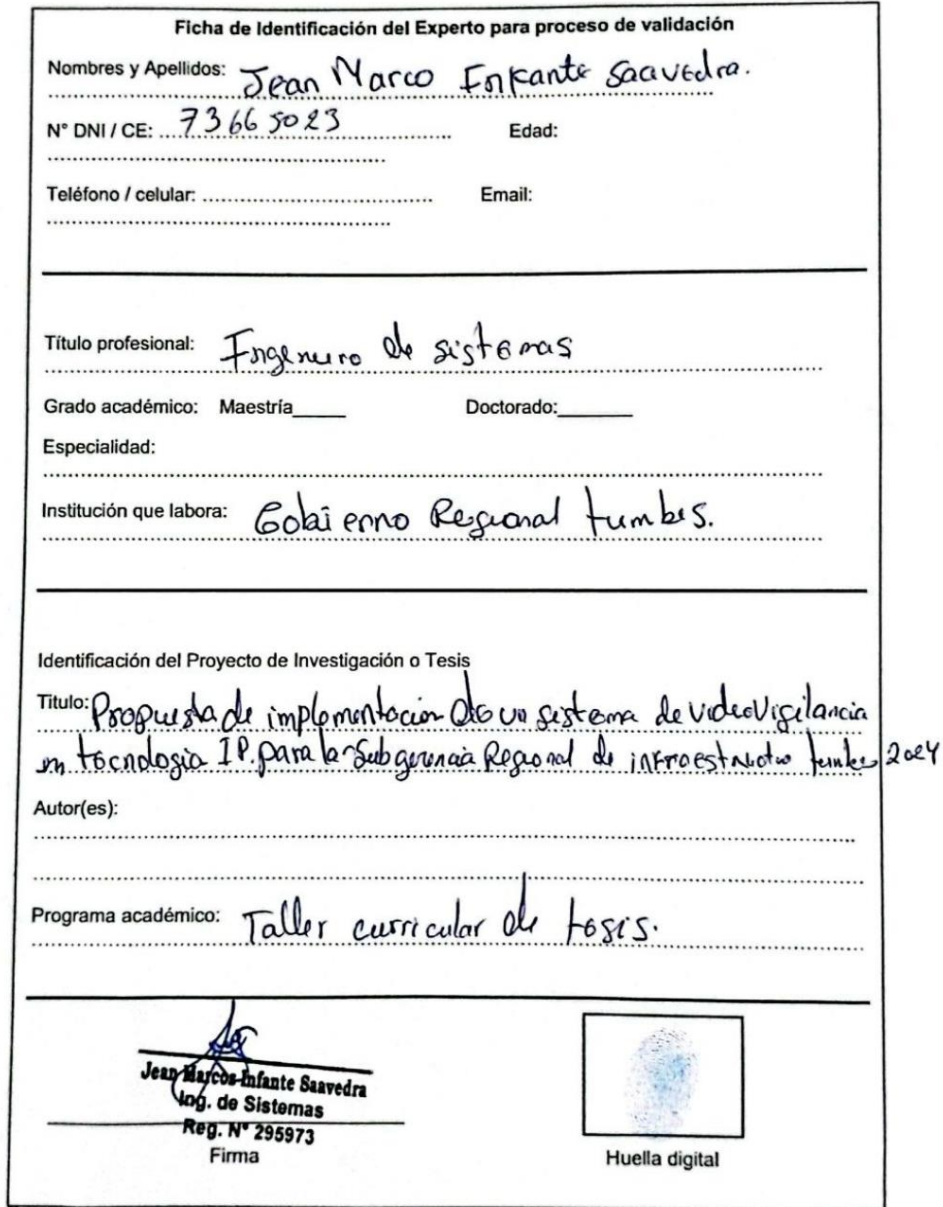 Ficha de Identificación del Experto para proceso de validación
Nombres y Apellidos: Jean Marco Infante Saavedra.
N° DNI / CE: 73665023 Edad:
Teléfono / celular: Email:
Título profesional: Ingeniero de sistemas
Grado académico: Maestría_____ Doctorado:_______
Especialidad:
Institución que labora: Gobierno Regional tumbes.
Identificación del Proyecto de Investigación o Tesis
Titulo: Propuesta de implementacion de un sistema de videovigilancia
en tecnologia IP. para la Subgerencia Regional de infraestructura tumbes 2024
Autor(es):
Programa académico: Taller curricular de tesis.
Jean Marcos Infante Saavedra
Ing. de Sistemas
Reg. N° 295973
Firma
Huella digital